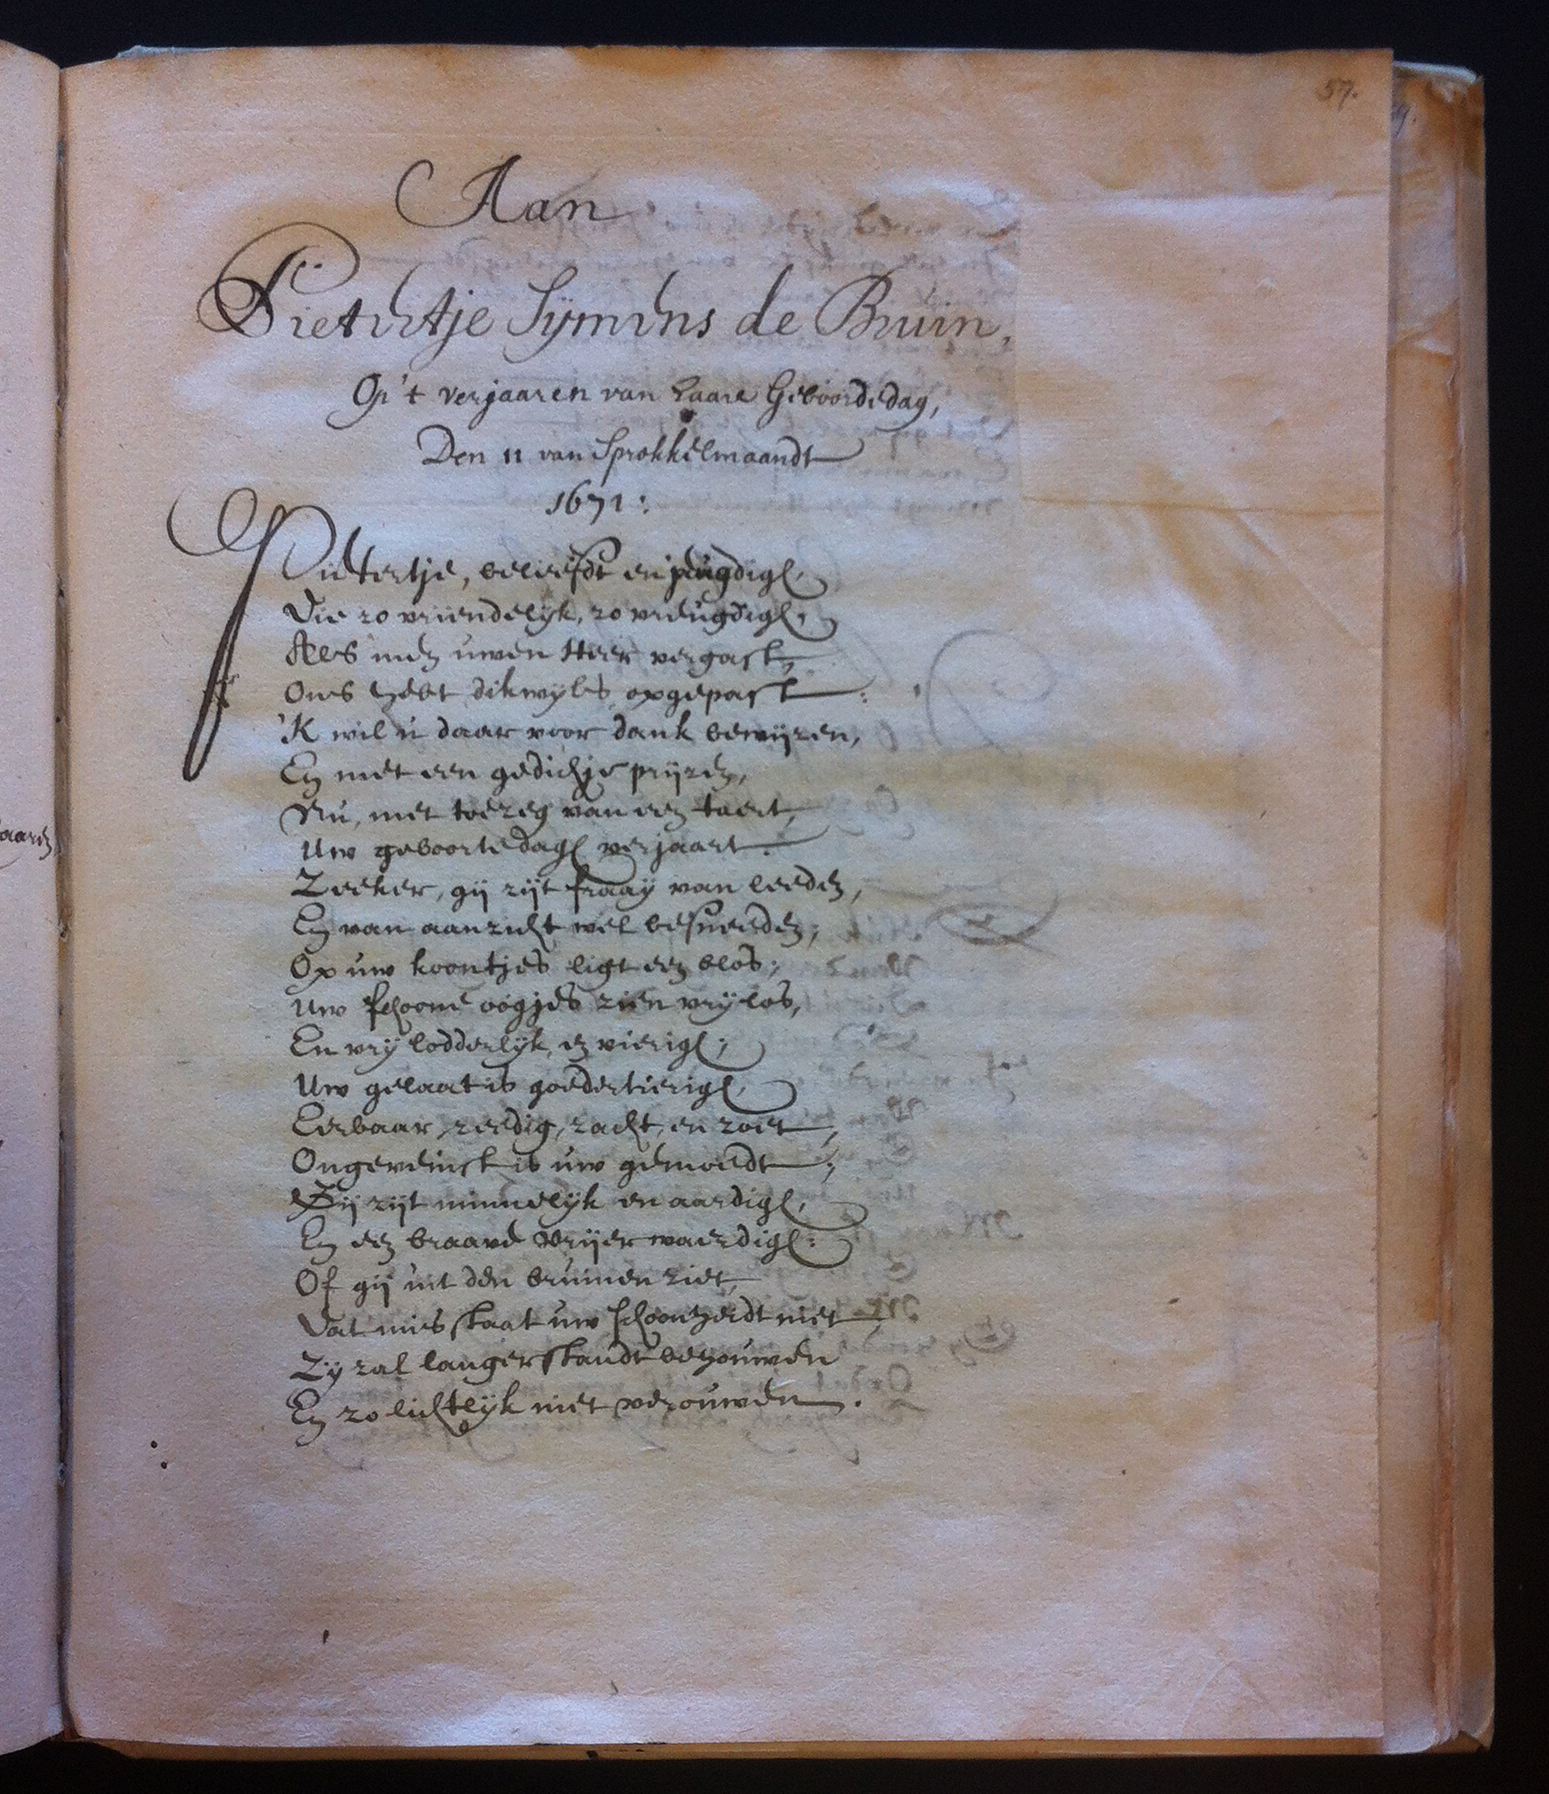 57.
Aan
Pietertje Sijmens de Bruin,
Op 't verjaaren van haare Geboordedag,
Den 11 van Sprokkelmaandt
1671:
Pietertje, beleefdt en jeugdig,
Die zo vriendelijk, zo vreugdig,
Als men uwen Heer vergast,
Ons hebt dikwyls opgepast:
'K wil u daar voor dank bewijzen,
En met een gedichje prijzen,
Nu, met toezeg van een taert,
Uw geboortedag verjaart.
Zeeker, gij zijt fraay van leeden,
En van aanzicht wel besneeden;
Op uw koontjes ligt een blos;
Uw schoone oogjes zien vry los,
En vry lodderlyk, en vierig;
Uw gelaat is goedertierig,
Eerbaar, zeedig, zacht, en zoet,
Ongeveinst is uw gemoedt;
Gij zijt minnelyk en aardig,
En een braave Vrijer waerdig:
Of gij uit den bruinen ziet,
Dat misstaat uw schoonheidt niet,
Zy zal langer standt behouwen
En zo lichtlyk niet verouwen.
aaren